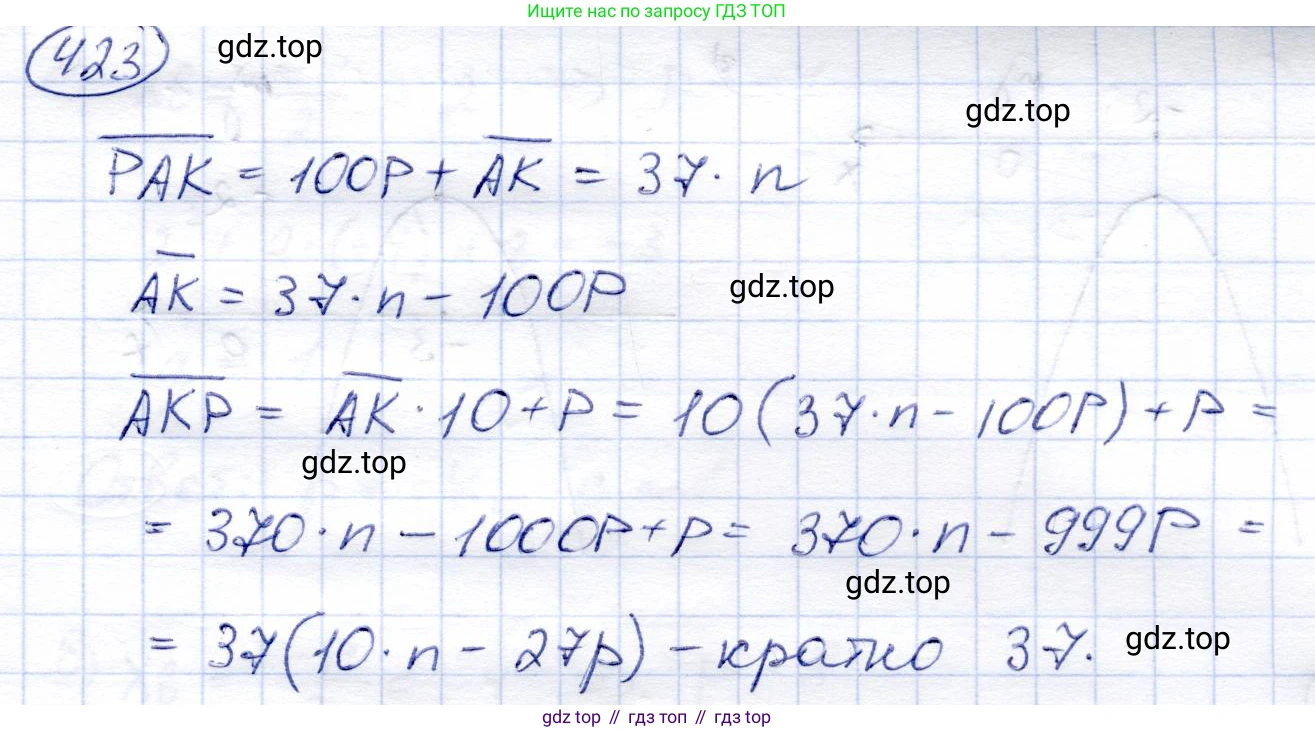 Ищите нас по запросу ГДЗ ТОП
423 gdz.top
gdz.top
PAK = 100P + AK = 37 · n
AK = 37 · n - 100P gdz.top
AKP = AK · 10 + P = 10(37 · n - 100P) + P =
gdz.top
= 370 · n - 1000P + P = 370 · n - 999P =
gdz.top
= 37(10 · n - 27P) - кратно 37. gdz.top
gdz top // гдз топ // gdz top